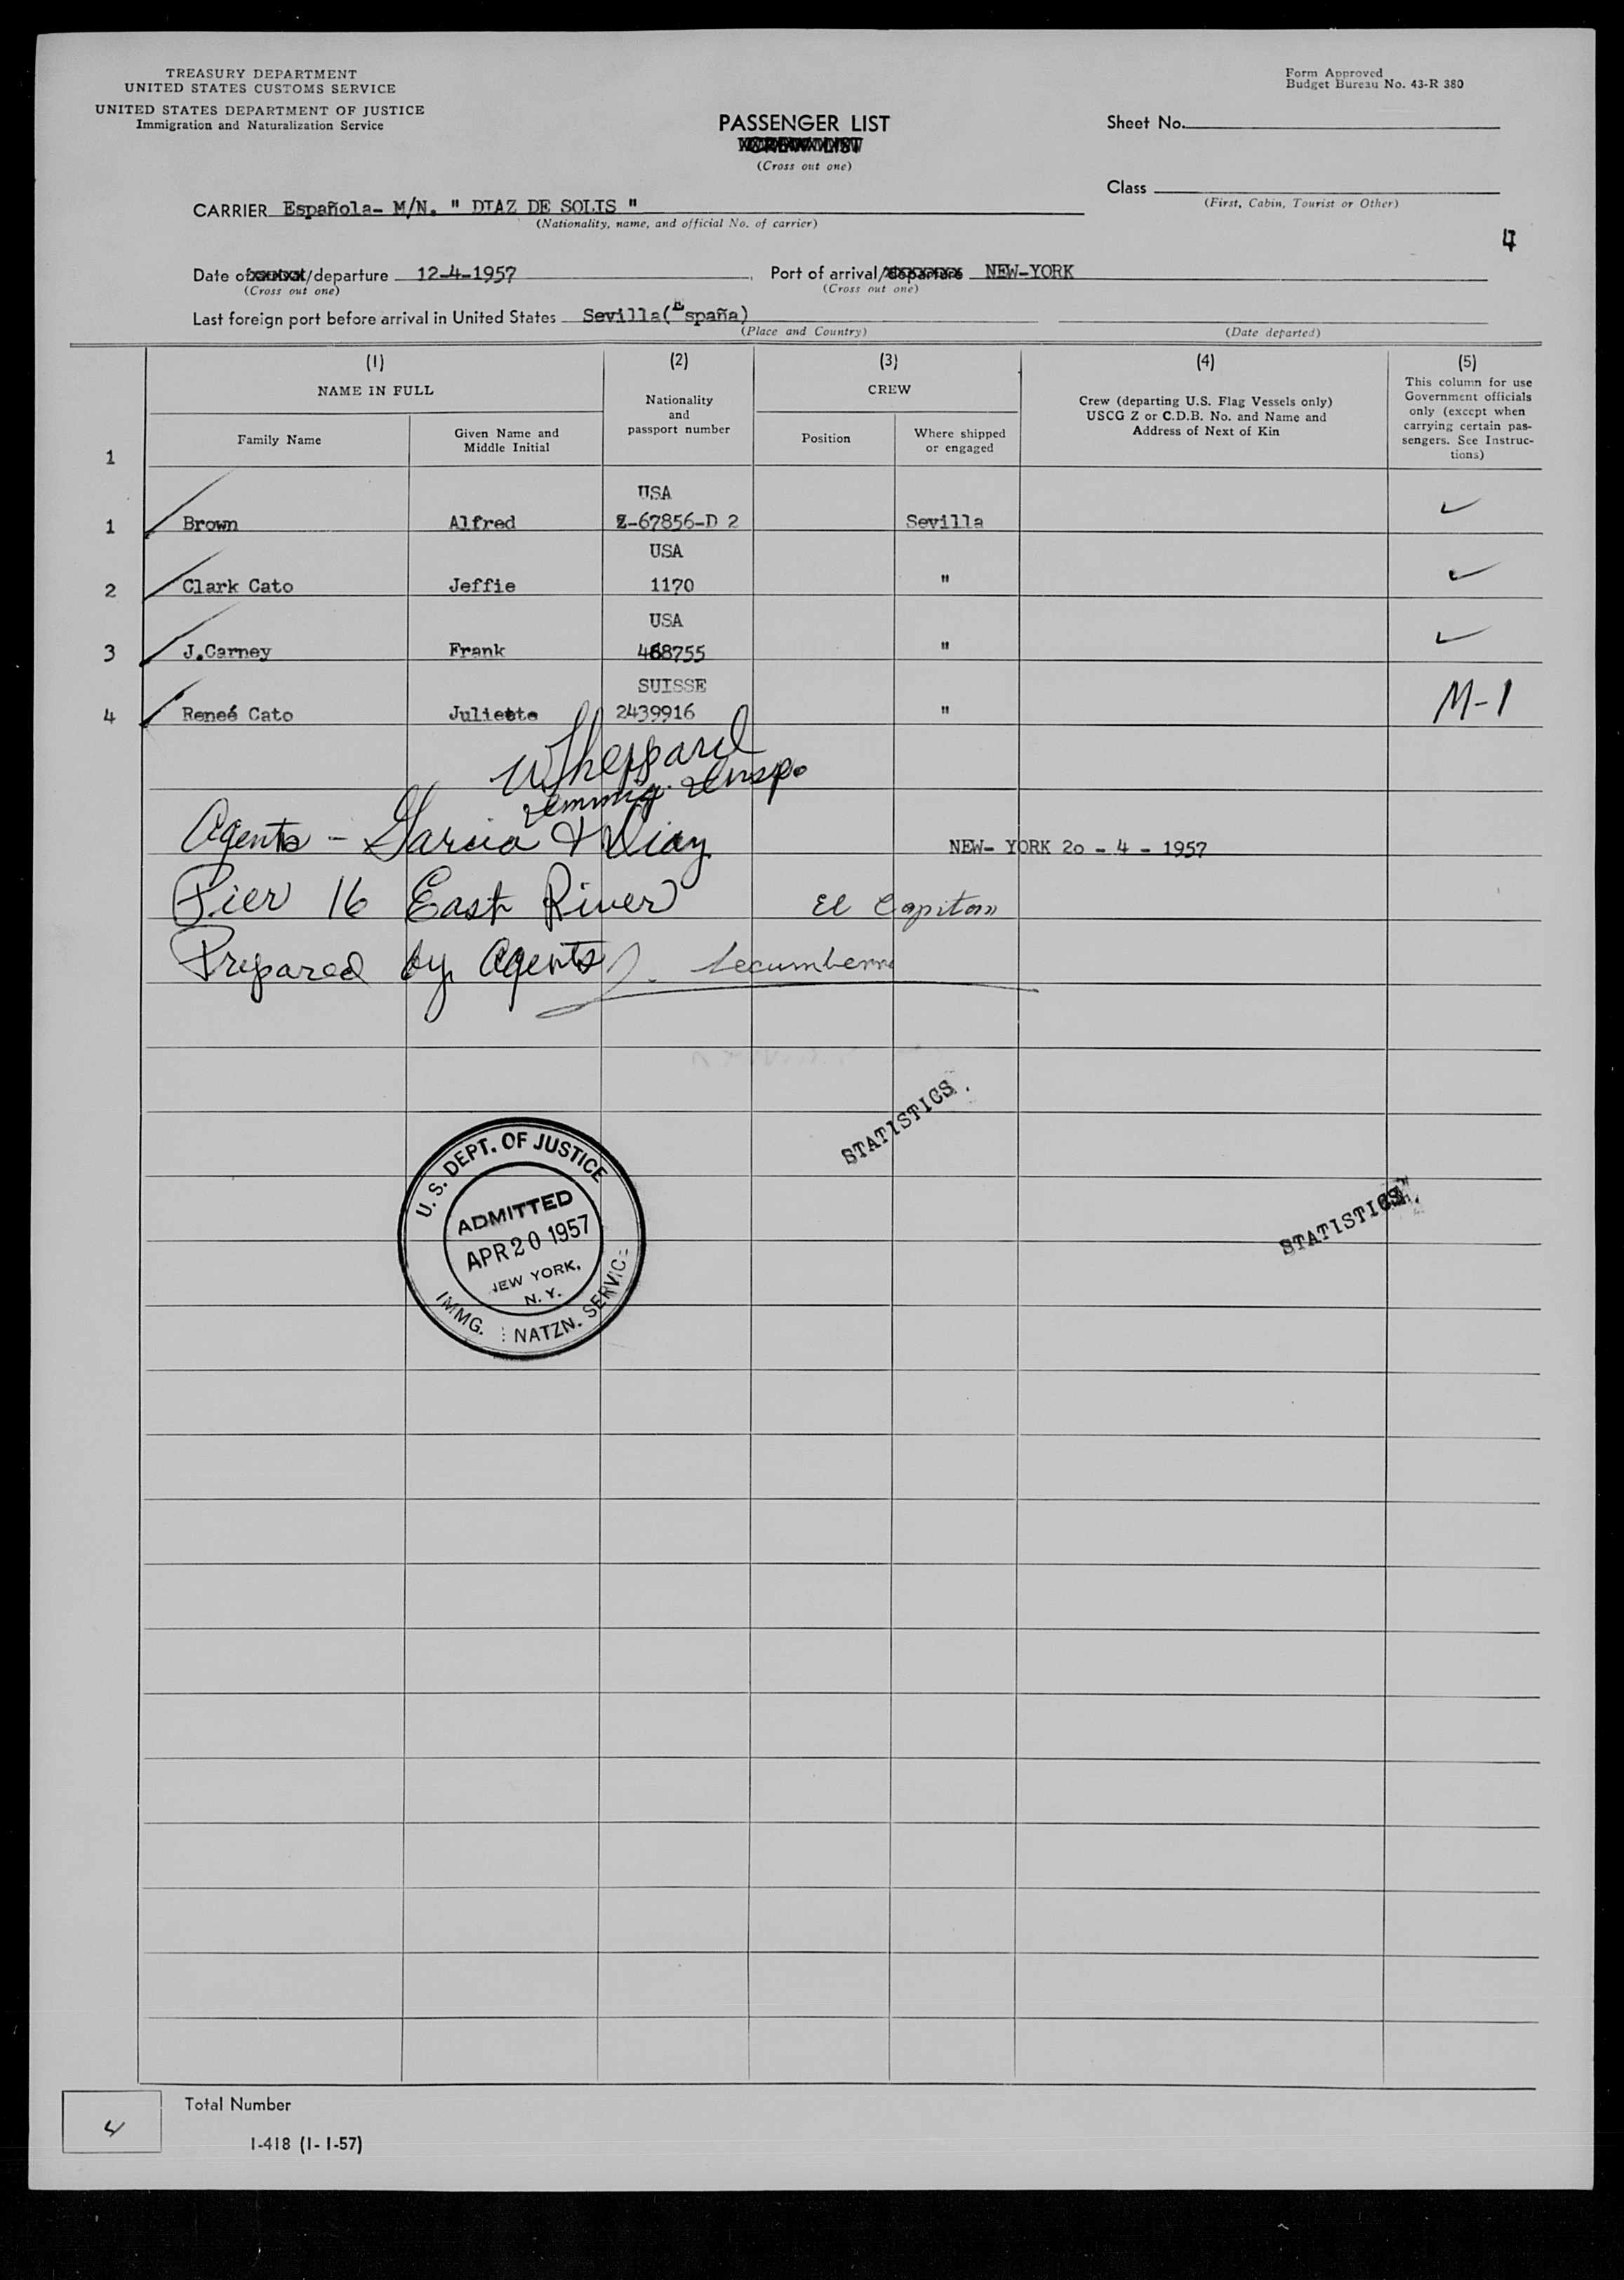 TREASURY DEPARTMENT
UNITED STATES CUSTOMS SERVICE
UNITED STATES DEPARTMENT OF JUSTICE
Immigration and Naturalization Service
Form Approved
Budget Bureau No. 43-R 380
PASSENGER LIST
CREW LIST
(Cross out one)
Sheet No.
Class
(First, Cabin, Tourist or Other)
4
CARRIER Española- M/N. " DIAZ DE SOLIS "
(Nationality, name, and official No. of carrier)
Date of /departure 12-4-1957
(Cross out one)
Port of arrival/departure NEW-YORK
(Cross out one)
Last foreign port before arrival in United States Sevilla(España)
(Place and Country)
(Date departed)
(1)
NAME IN FULL
Family Name
Given Name and
Middle Initial
(2)
Nationality
and
passport number
(3)
CREW
Position
Where shipped
or engaged
(4)
Crew (departing U.S. Flag Vessels only)
USCG Z or C.D.B. No. and Name and
Address of Next of Kin
(5)
This column for use
Government officials
only (except when
carrying certain pas-
sengers. See Instruc-
tions)
1
USA
1 Brown Alfred Z-67856-D 2 Sevilla
USA
2 Clark Cato Jeffie 1170 "
USA
3 J.Carney Frank 468755 "
SUISSE
4 Reneé Cato Juliette 2439916 " M-1
W Sheppard
Immig. Insp.
Agents - Garcia & Diaz
NEW- YORK 20 - 4 - 1957
Pier 16 East River
El Capitan
Prepared by Agents
J. Lecumberri
STATISTICS
STATISTICS
U. S. DEPT. OF JUSTICE
ADMITTED
APR 20 1957
NEW YORK,
N. Y.
IMMG. NATZN. SERVICE
4
Total Number
I-418 (1-1-57)